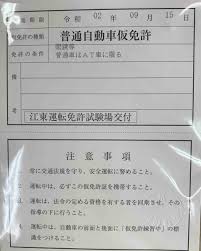 令和 02年 09月 15日
免許の種類 普通自動車仮免許
免許の条件 眼鏡等
普通車はAT車に限る
備考
江東運転免許試験場交付
注意事項
1. 常に交通法規を守り、安全運転に努めること。
2. 運転中は、必ずこの仮免許証を携帯すること。
3. 運転中は、法令の定める資格を有する者を同乗させ、その
指導の下に行うこと。
4. 運転中は、自動車の前面と後面に「仮免許練習中」の標
識をつけること。